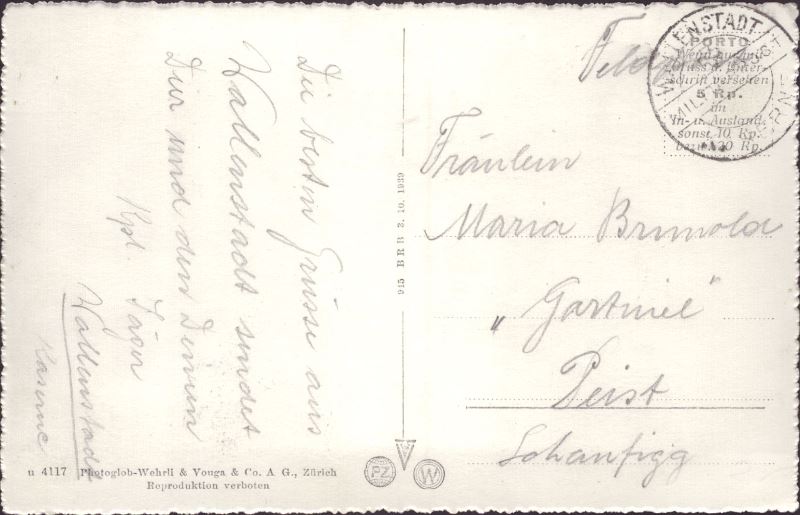 Die besten Grüsse aus
Wallenstadt sendet
Dir und den Deinen
Kpl. Jäger
Wallenstadt
Kaserne
u 4117 Photoglob-Wehrli & Vouga & Co. A. G., Zürich
Reproduktion verboten
945 BRB 3. 10. 1939
PZ
W
Feldpost
WALLENSTADT
PORTO
Wenn nur mit
Gruss u. Unter-
schrift versehen
5 Rp.
im
In- u. Ausland,
sonst 10 Rp.
bezw. 20 Rp.
Fräulein
Maria Brunold
„Gartniel"
Peist
Schanfigg